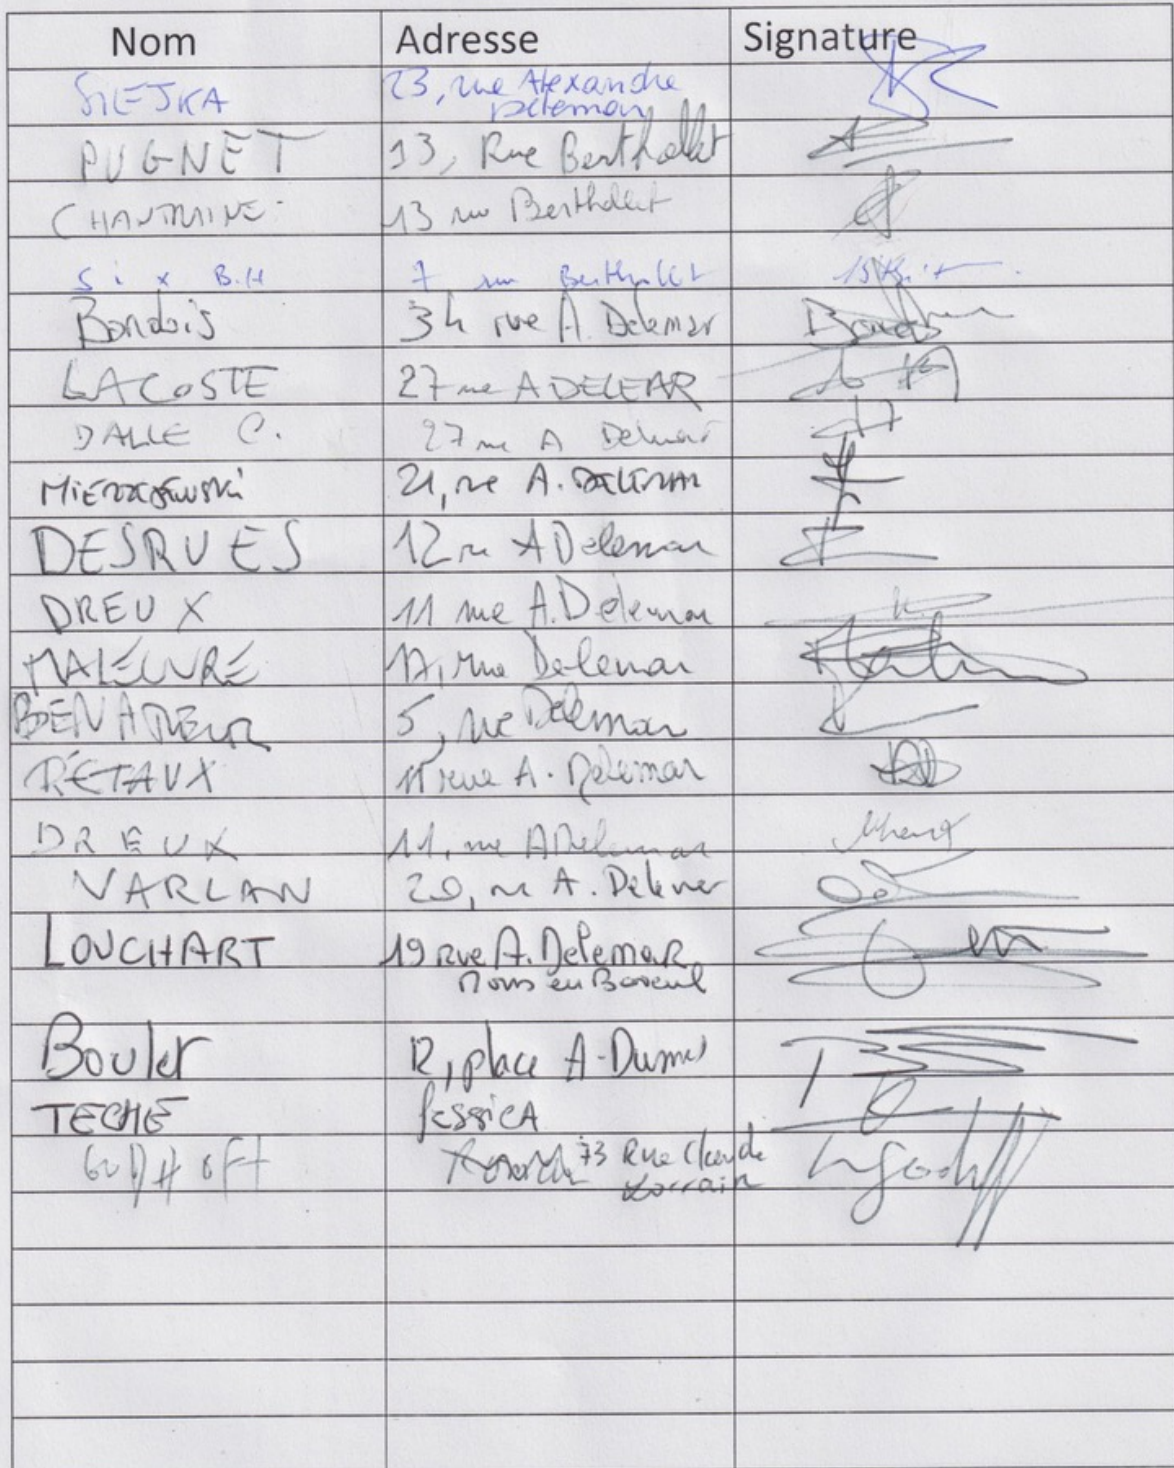 Nom Adresse Signature
SIEJKA 23, rue Alexandre
Delemar
PUGNET 13, Rue Berthollet
CHANTRAINE 13 rue Berthollet
Six B.H 7 rue Berthollet
Bondois 34 rue A. Delemar
LACOSTE 27 rue A DELEMAR
DALLE C. 27 rue A Delemar
21, rue A. DELEMAR
DESRUES 12 rue A Delemar
DREUX 11 rue A. Delemar
MALÉUVRE 17, rue Delemar
5, rue Delemar
RÉTAUX 11 rue A. Delemar
DREUX 11, rue A Delemar
VARLAN 20, rue A. Delemer
LOUCHART 19 rue A. Delemar
Mons en Baroeul
Boulet 12, place A-Dumas
TECHE JessicA
73 Rue Claude
Lorrain